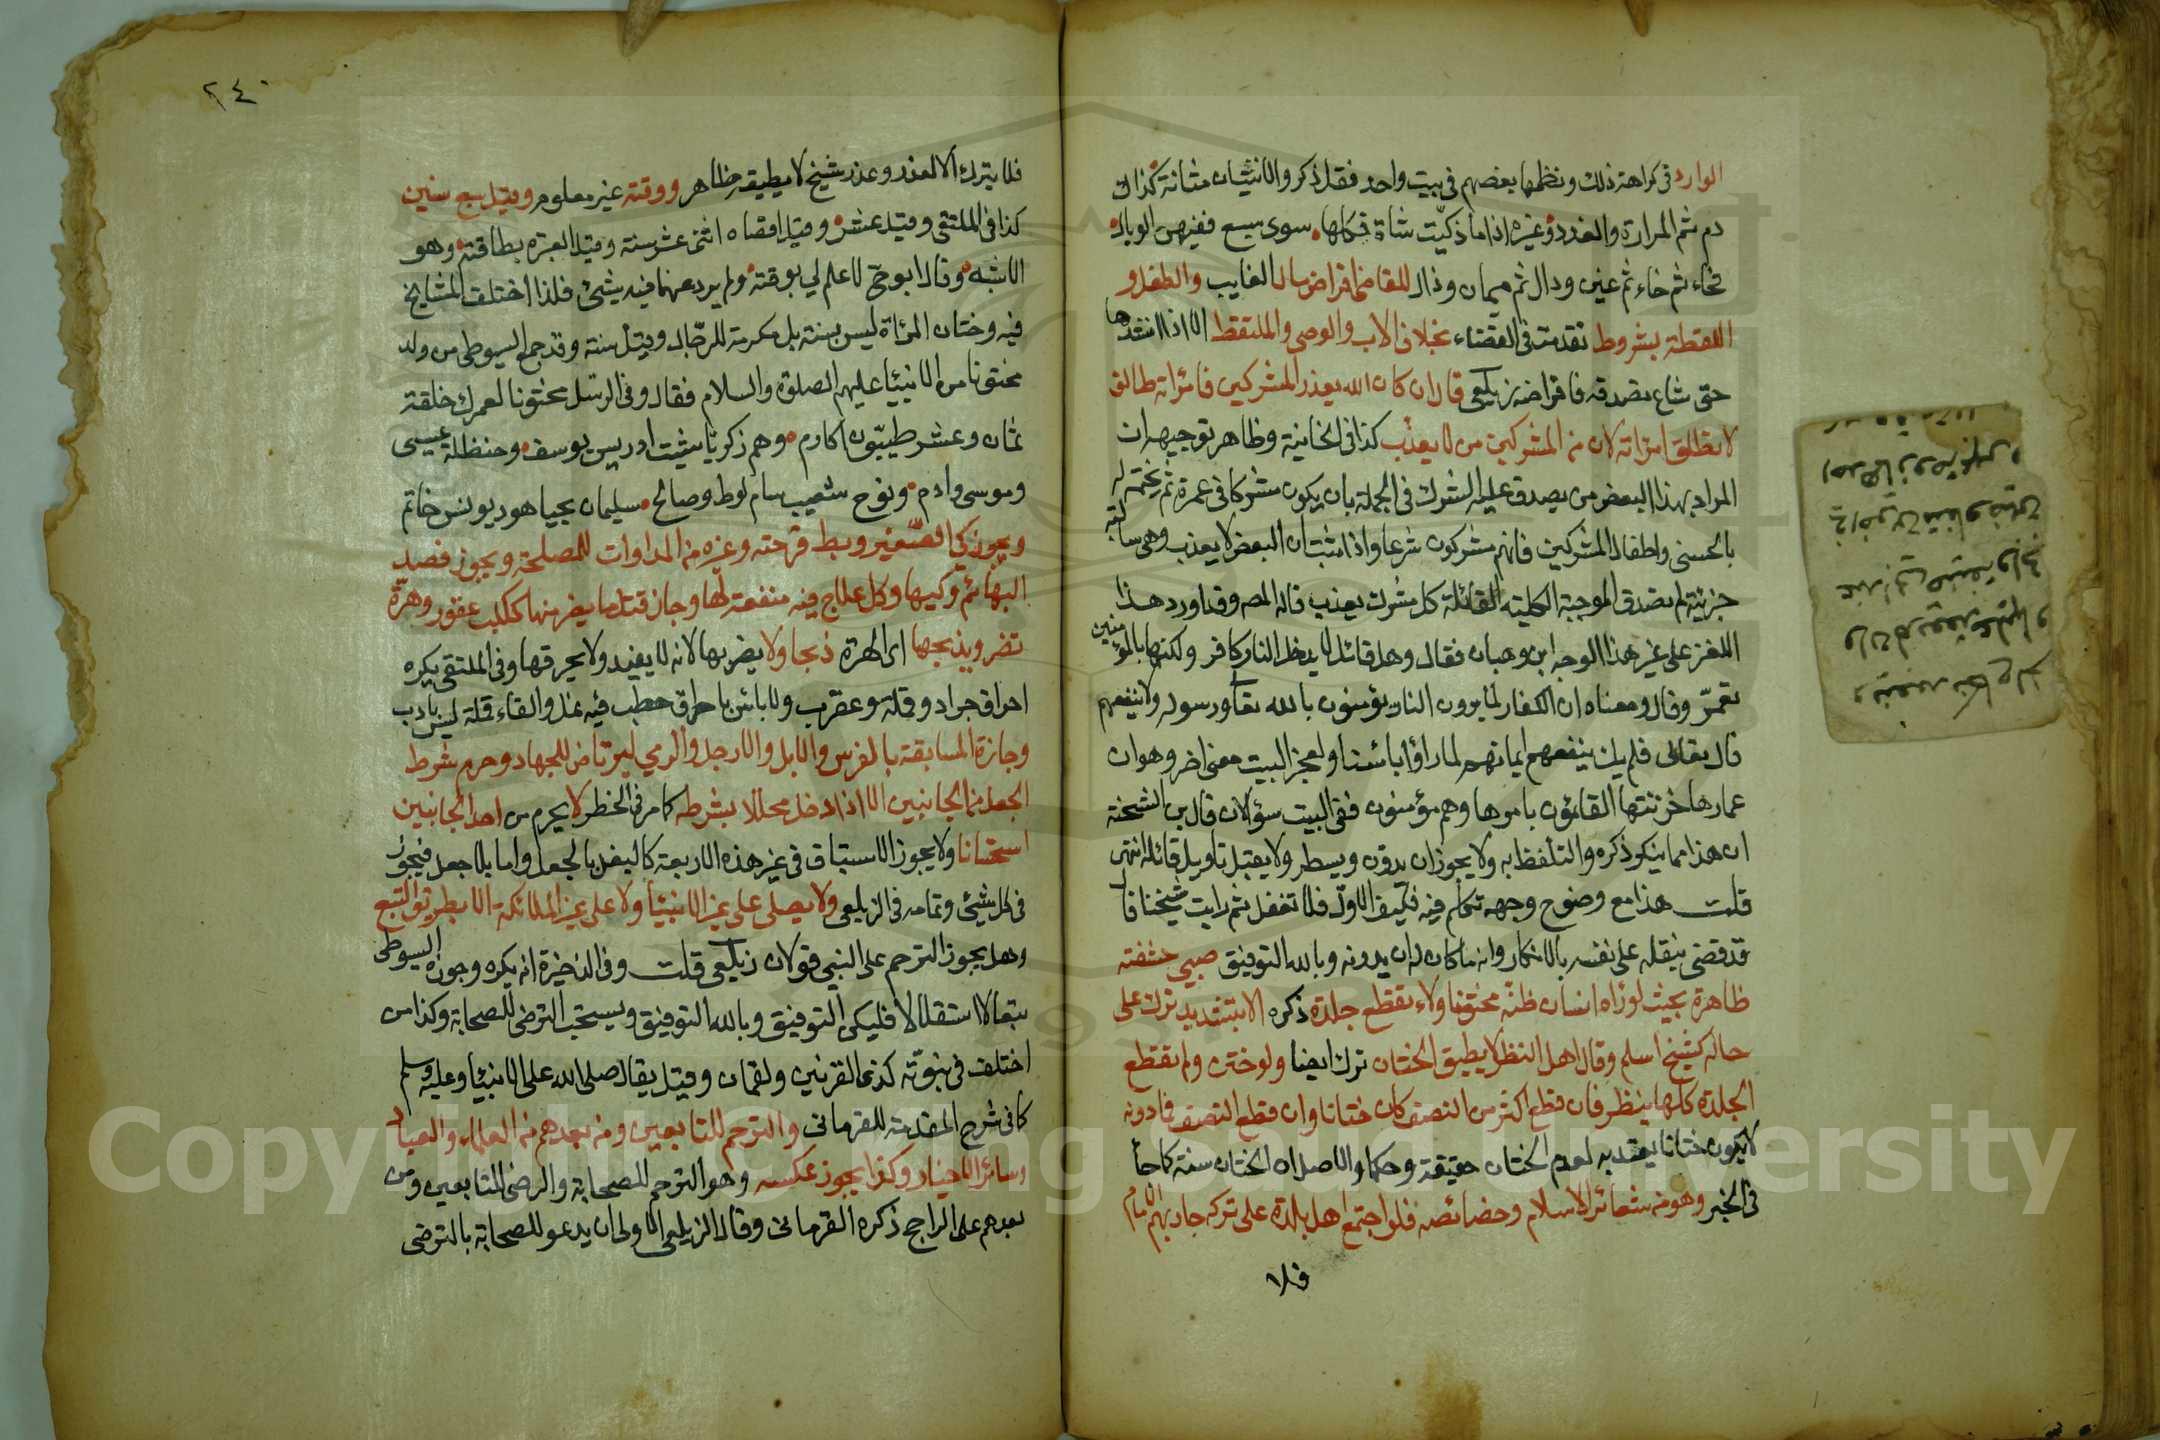 الوارد في كراهة ذلك ونظمها بعضهم في بيت واحد فقل ذكر والانثيان مثانة كذاك
دم ثم المرارة والغدد وغيره اذا ما ذكيت شاة فكلها سوى سبع ففيهن الوبال
فحاء ثم خاء ثم غين ودال ثم ميمان وذال للقاضي اقراض مال الغايب والطفل و
اللقطة بشروط تقدمت في القضاء بخلاف الاب والوصي والملتقط الا اذا انشدها
حتى شاع تصدقه فاقراضه زيلعي قال ان كان الله يعذر المشركين فامراته طالق
لا تطلق امراته لان من المشركين من لا يعذب كذا في الخانية وظاهر توجيهه ان
المراد بهذا البعض من يصدق عليه الشرك في الجملة بان يكون مشركا في عمرة ثم يختم له
بالحسنى واطفال المشركين فانهم مشركون شرعا واذا ثبت ان البعض لا يعذب وهي سالبة
جزئية لم تصدق الموجبة الكلية القائلة كل مشرك يعذب قاله المصـ وقد اورد هذا
اللغز على غير هذا الوجه ابن وهبان فقال وهل قائل لا يدخل النار كافر ولكنها بالمؤمنين
تعمر وقال ومعناه ان الكفار لما يرون النار يؤمنون بالله تعالى ورسوله ولا ينفعهم
قال تعالى فلم يك ينفعهم ايمانهم لما راؤا باسنا ولعجز البيت معنى اخر وهو ان
عمارها خزنتها القائمون بامرها وهم مؤمنون ففي البيت سؤالان قال بن الشحنة
ان هذا مما ينكر ذكره والتلفظ به ولا يجوز ان يدون ويسطر ولا يقبل تاويل قائله انتهى
قلت هذا مع وضوح وجهه تكلم فيه فكيف الاول فلا تغفل ثم رايت شيخنا قال
قد قضى بنقله على نفسه بالانكار وانه ما كان له ان يدونه وبالله التوفيق صبي حشفته
ظاهرة بحيث لو راه انسان ظنه مختونا ولا تقطع جلدة ذكره الا بتشديد ترك على
حاله كشيخ اسلم وقال اهل النظر لا يطيق الختان ترك ايضا ولو ختن ولم تقطع
الجلدة كلها ينظر فان قطع اكثر من النصف كان ختانا وان قطع النصف فما دونه
لا يكون ختانا يعتد به لعدم الختان حقيقة وحكما والاصل ان الختان سنة كما جا
في الخبر وهو من شعائر الاسلام وخصائصه فلو اجتمع اهل بلدة على تركه حاربهم الامام
فلا
٢٤٠
فلا يترك الا لعذر وعذر شيخ لا يطيقه ظاهر ووقته غير معلوم وقيل سبع سنين
كذا في الملتقى وقيل عشر وقيل اقصاه اثني عشر سنة وقيل العبرة بطاقته وهو
الاشبه وقال ابو ح لا علم لي بوقته ولم يرد عنهما فيه شيئ فلذا اختلف المشايخ
فيه وختان المراة ليس بسنة بل مكرمة للرجال وقيل سنة وقد جمع السيوطي من ولد
مختونا من الانبيا عليهم الصلوة والسلام فقال وفي الرسل مختونا لعمرك خلقة
ثمان وعشر طيبون اكارم وهم زكريا شيث ادريس يوسف وحنظلة عيسى
وموسى وادم ونوح شعيب سام لوط وصالح سليمان يحيا هود يونس خاتم
ويجوز كي الصغير وبط قرحته وغيره من المداوات للمصلحة ويجوز فصد
البهائم وكيها وكل علاج فيه منفعة لها وجاز قتل ما يضر منها ككلب عقور وهرة
تضر ويذبحها اي الهرة ذبحا ولا يضربها لانه لا يفيد ولا يحرقها وفي الملتقى يكره
احراق جراد وقلة وعقرب ولا باس باحراق حطب فيه نمل والقاء قملة ليس بادب
وجازة المسابقة بالفرس والابل والارجل والرمي ليرتاض للجهاد وحرم شرط
الجعل من الجانبين الا اذا ادخل محللا بشرطه كما مر في الخطر لا يحرم من احد الجانبين
استحسانا ولا يجوز الاستباق في غير هذه الاربعة كالبغل بالجعل واما بلا جعل فيجوز
في كل شيئ وتمامه في الزيلعي ولا يصلي على غير الانبيا ولا على غير الملائكة الا بطريق التبع
وهل يجوز الترحم على النبي قولان زيلعي قلت وفي الذخيرة انه يكره وجوزه السيوطي
تبعا لا استقلالا فليكن التوفيق وبالله التوفيق ويستحب الترضي للصحابة وكذا من
اختلف في نبوته كذي القرنين ولقمان وقيل يقال صلى الله على الانبيا وعليه وسلم
كما في شرح المقدمة للقرماني والترحم للتابعين ومن بعدهم من العلماء والعباد
وسائر الاخيار وكذا يجوز عكسه وهو الترحم للصحابة والرضى للتابعين ومن
بعدهم على الراجح ذكره القرماني وقال الزيلعي الاولى ان يدعو للصحابة بالترضي
Copyright © King Saud University